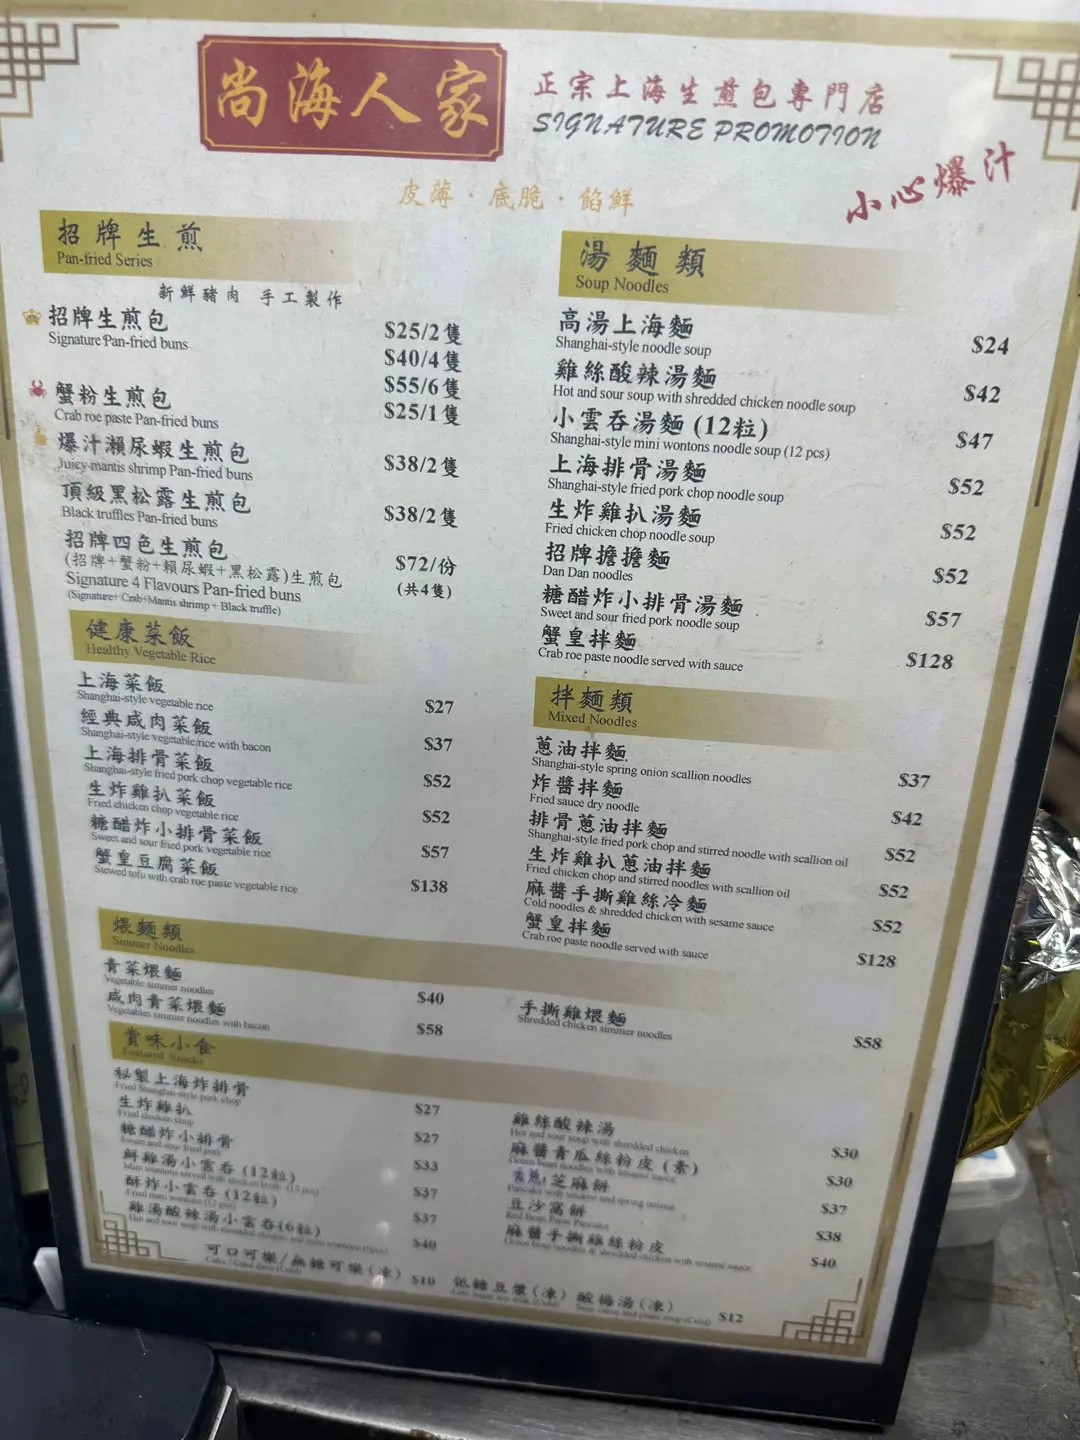 尚海人家
正宗上海生煎包專門店
SIGNATURE PROMOTION
皮薄·底脆·餡鮮
小心爆汁
招牌生煎
Pan-fried Series
新鮮豬肉 手工製作
招牌生煎包
Signature Pan-fried buns
$25/2隻
$40/4隻
$55/6隻
蟹粉生煎包 $25/1隻
Crab roe paste Pan-fried buns
爆汁瀨尿蝦生煎包 $38/2隻
Juicy-mantis shrimp Pan-fried buns
頂級黑松露生煎包 $38/2隻
Black truffles Pan-fried buns
招牌四色生煎包 $72/份
(招牌+蟹粉+賴尿蝦+黑松露)生煎包 (共4隻)
Signature 4 Flavours Pan-fried buns
(Signature+ Crab+Mantis shrimp + Black truffle)
健康菜飯
Healthy Vegetable Rice
上海菜飯 $27
Shanghai-style vegetable rice
經典咸肉菜飯 $37
Shanghai-style vegetable rice with bacon
上海排骨菜飯 $52
Shanghai-style fried pork chop vegetable rice
生炸雞扒菜飯 $52
Fried chicken chop vegetable rice
糖醋炸小排骨菜飯 $57
Sweet and sour fried pork vegetable rice
蟹皇豆腐菜飯 $138
Stewed tofu with crab roe paste vegetable rice
湯麵類
Soup Noodles
高湯上海麵 $24
Shanghai-style noodle soup
雞絲酸辣湯麵 $42
Hot and sour soup with shredded chicken noodle soup
小雲吞湯麵 (12粒) $47
Shanghai-style mini wontons noodle soup (12 pcs)
上海排骨湯麵 $52
Shanghai-style fried pork chop noodle soup
生炸雞扒湯麵 $52
Fried chicken chop noodle soup
招牌擔擔麵 $52
Dan Dan noodles
糖醋炸小排骨湯麵 $57
Sweet and sour fried pork noodle soup
蟹皇拌麵 $128
Crab roe paste noodle served with sauce
拌麵類
Mixed Noodles
蔥油拌麵 $37
Shanghai-style spring onion scallion noodles
炸醬拌麵 $42
Fried sauce dry noodle
排骨蔥油拌麵 $52
Shanghai-style fried pork chop and stirred noodle with scallion oil
生炸雞扒蔥油拌麵 $52
Fried chicken chop and stirred noodles with scallion oil
麻醬手撕雞絲冷麵 $52
Cold noodles & shredded chicken with sesame sauce
蟹皇拌麵 $128
Crab roe paste noodle served with sauce
煨麵類
Simmer Noodles
青菜煨麵 $40
Vegetable simmer noodles
咸肉青菜煨麵 $58
Vegetables simmer noodles with bacon
手撕雞煨麵 $58
Shredded chicken simmer noodles
賞味小食
Featured Snacks
秘製上海炸排骨 $27
Fried Shanghai-style pork chop
生炸雞扒 $27
Fried chicken chop
糖醋炸小排骨 $33
Sweet and sour fried pork
鮮雞湯小雲吞 (12粒) $37
Mini wontons served with chicken broth (12 pcs)
酥炸小雲吞 (12粒) $37
Fried mini wontons (12 pcs)
雞湯酸辣湯小雲吞(6粒) $40
Hot and sour soup with shredded chicken and mini wontons (6pcs)
雞絲酸辣湯 $30
Hot and sour soup with shredded chicken
麻醬青瓜絲粉皮 (素) $30
Green bean noodles with sesame sauce
芝麻餅 $37
Pancake with sesame and spring onions
豆沙窩餅 $38
Red Bean Paste Pancake
麻醬手撕雞絲粉皮 $40
Green bean noodles & shredded chicken with sesame sauce
可口可樂/無糖可樂(凍) $10 低糖豆漿(凍) 酸梅湯(凍) $12